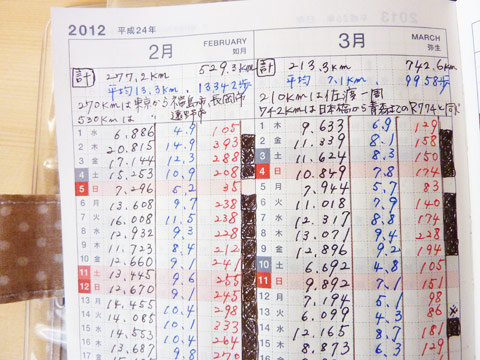 2012 平成24年
2月 FEBRUARY 如月
計 277.2km 529.3km
平均 13.3km、13342歩
270kmは東京から福島市、長岡市
530kmは 〃
1 水 6.886 4.9 105
2 木 20.815 14.9 393
3 金 17.144 12.3 288
4 土 15.253 10.9 208
5 日 7.296 5.2 35
6 月 13.608 9.7 238
7 火 16.008 11.5 238
8 水 12.932 9.3 228
9 木 11.723 8.4 212
10 金 12.660 9.1 241
11 土 13.445 9.6 255
12 日 12.670 9.1 245
13 月 14.455 10.4 298
14 火 14.085 10.1
15 水 14.553 10.4 264
16 木 13.687 9.8 270
3月 MARCH 弥生
計 213.3km 742.6km
平均 7.1km、9958歩
210kmは佐渡一周
742kmは日本橋から青森までのR774と同じ
1 木 9.633 6.9 129
2 金 11.619 8.3 158
3 土 11.624 8.3 150
4 日 10.849 7.8 174
5 月 7.944 5.7 83
6 火 11.018 7.9 140
7 水 12.317 8.8 174
8 木 13.071 9.4 228
9 金 12.896 9.2 194
10 土 6.692 4.8 105
11 日 9.892 7.1 151
12 月 7.194 5.1 98
13 火 6.099 4.3 86
14 水 12.165 8.7 181
15 木